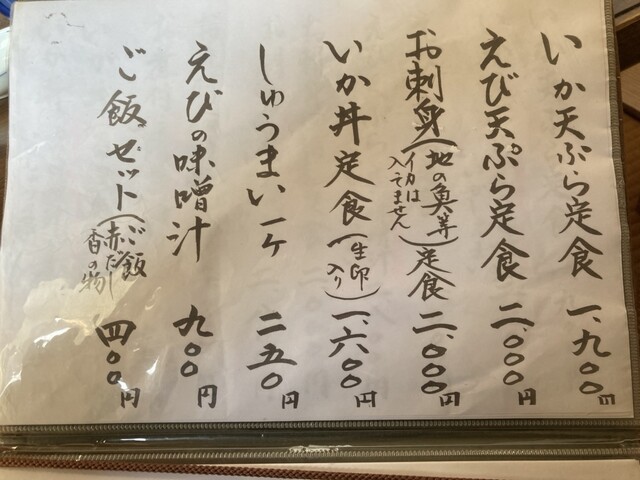 いか天ぷら定食 一、九〇〇円
えび天ぷら定食 二、〇〇〇円
お刺身(地の魚等)定食 二、〇〇〇円
イカは
入ってません
いか丼定食(生卵入り) 一、六〇〇円
しゅうまい一ヶ 二五〇円
えびの味噌汁 九〇〇円
ご飯セット(ご飯
赤だし
香の物) 四〇〇円